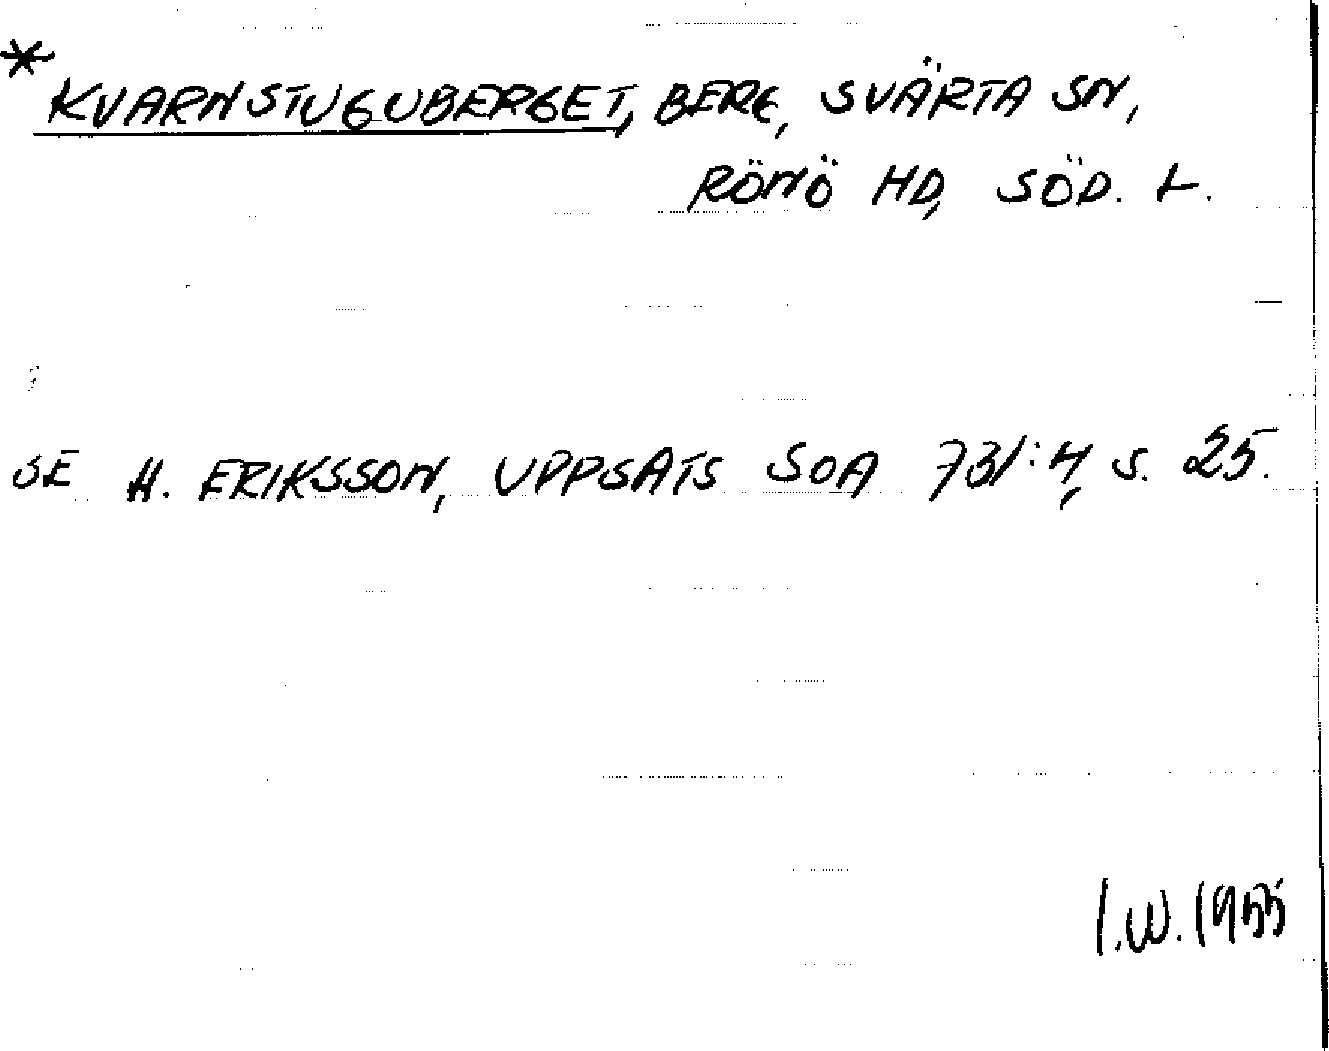 * KVARNSTUGUBERGET, BERG, SVÄRTA SN,
RÖNÖ HD, SÖD. L.
SE H. ERIKSSON, UPPSATS SOA 731:4, S. 25.
I.W. 1955